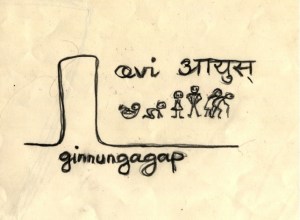 avi आयुस्
ginnungagap